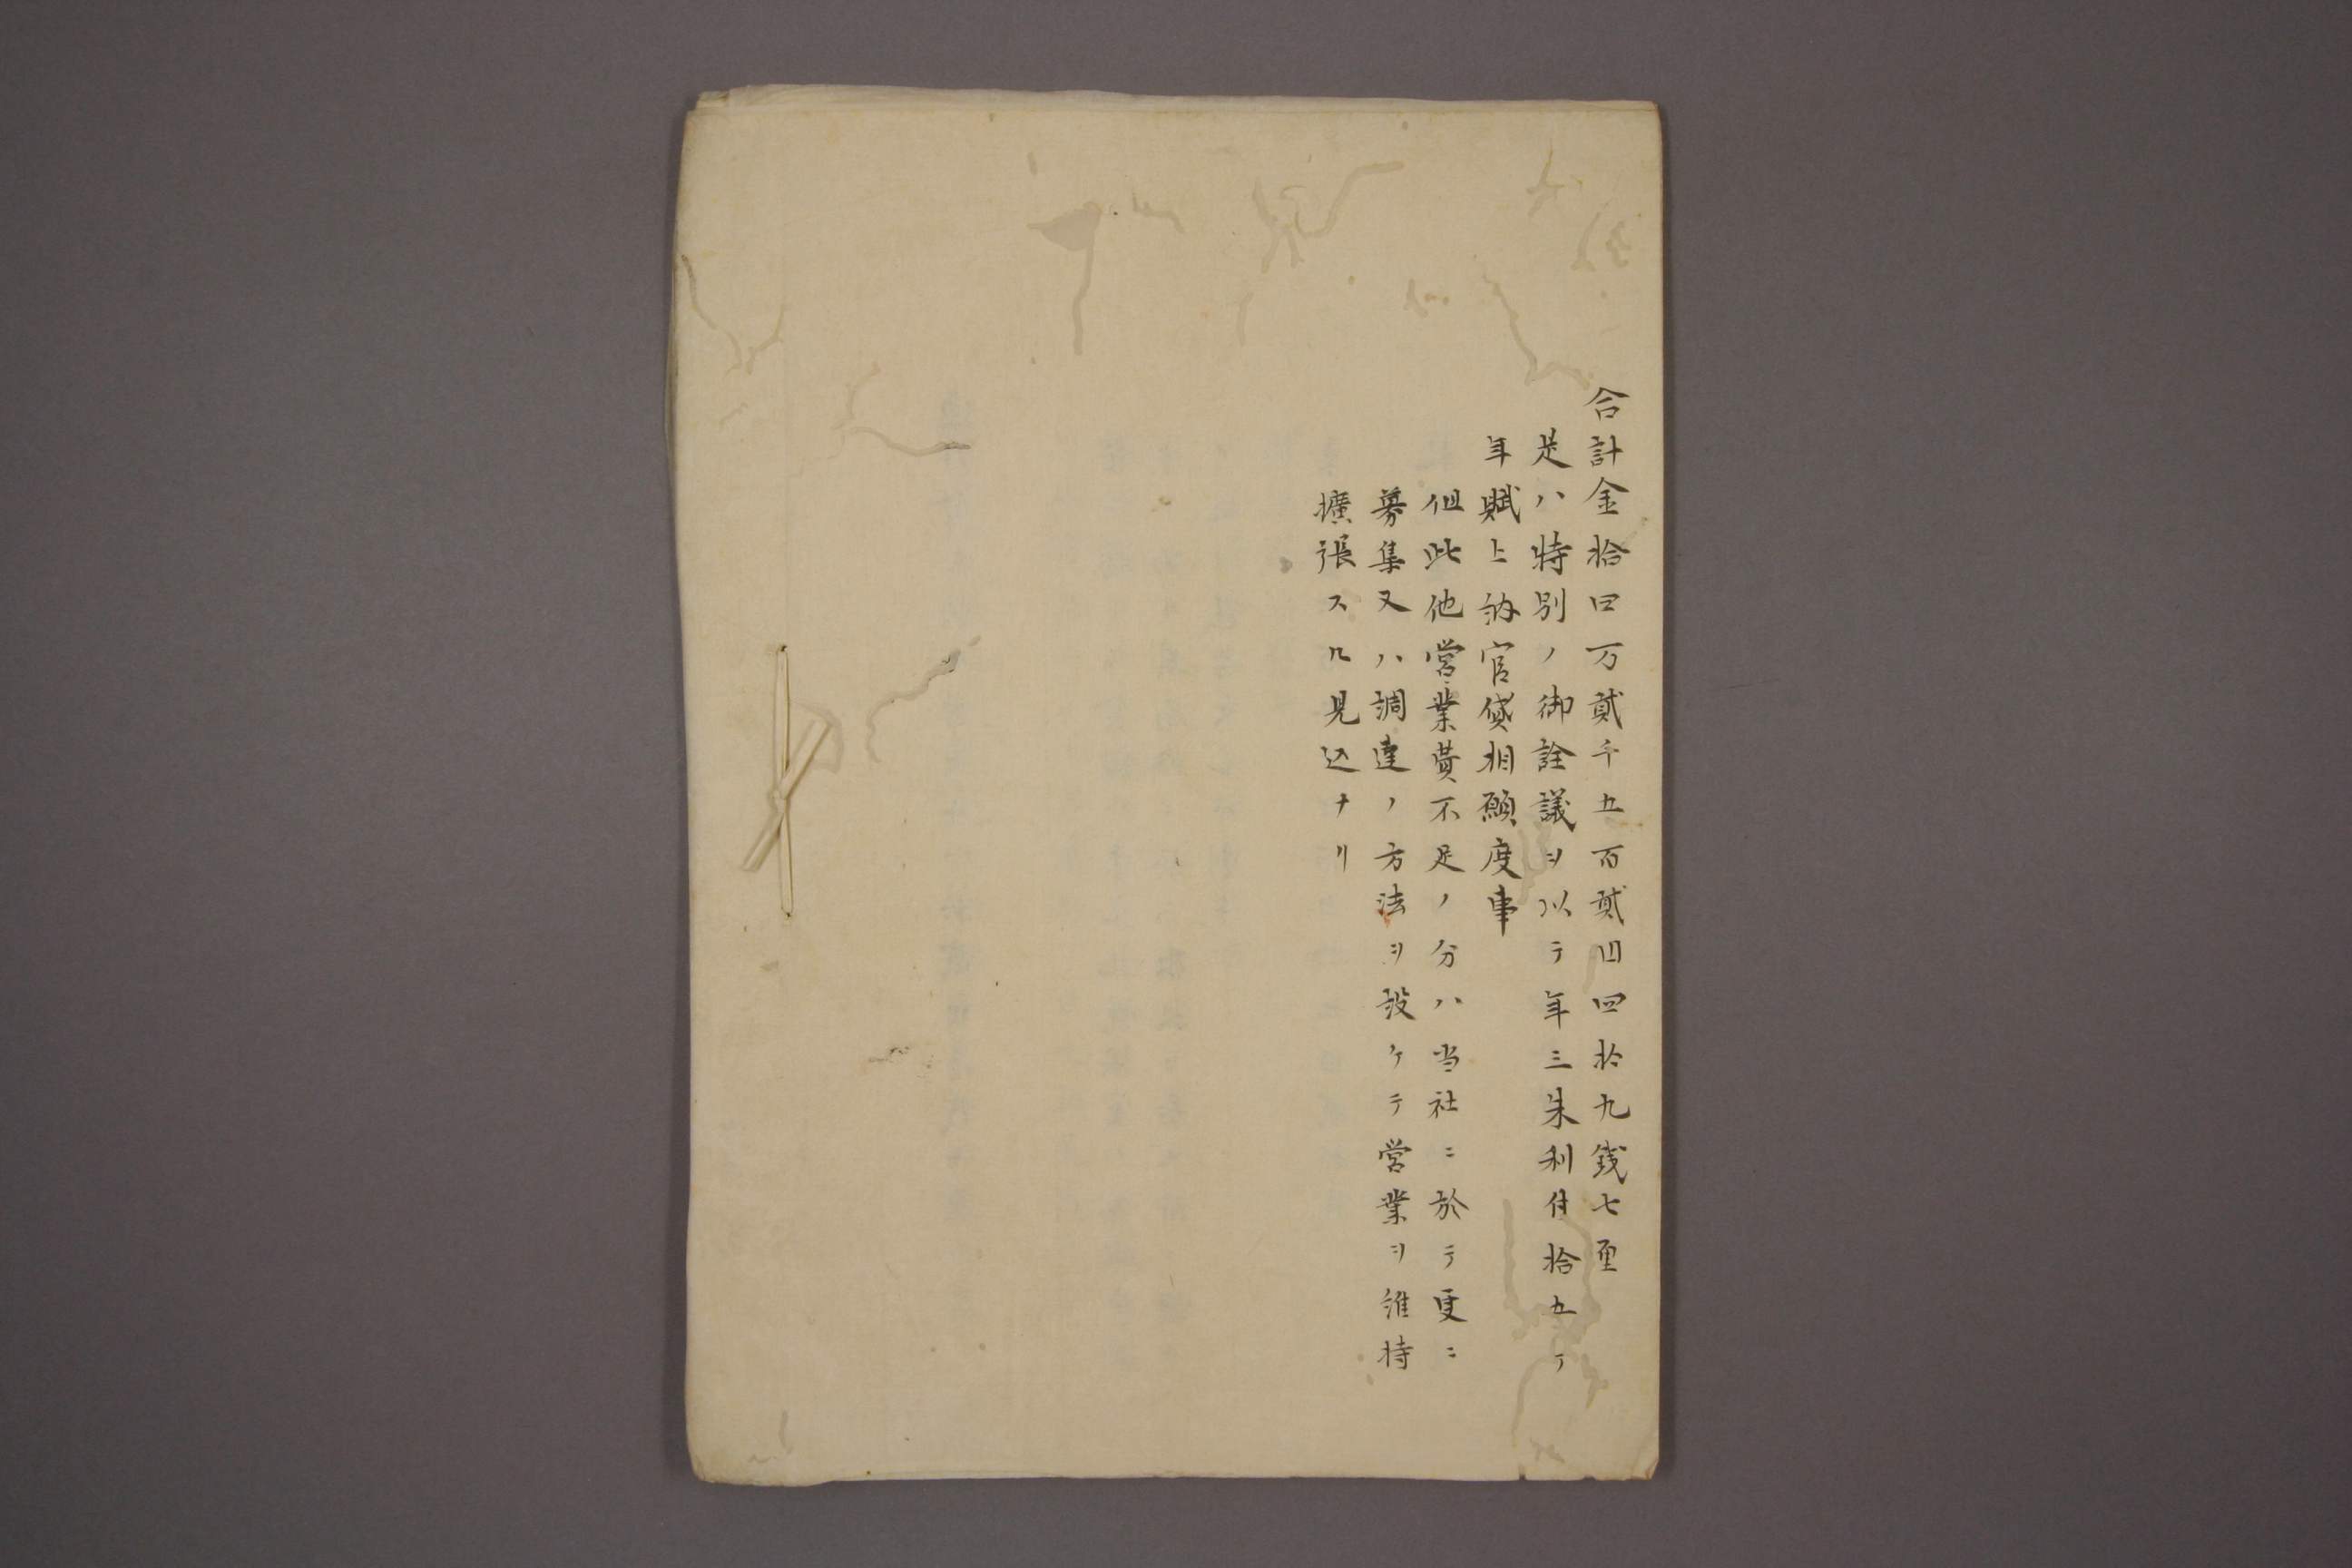 合計金拾四万貮千五百貮円四拾九銭七厘
是ハ特別ノ御詮議ヲ以テ年三朱利付拾五ケ
年賦上納官貸相願度事
但此他営業費不足ノ分ハ当社ニ於テ更ニ
募集又ハ調達ノ方法ヲ設ケテ営業ヲ維持
擴張スル見込ナリ